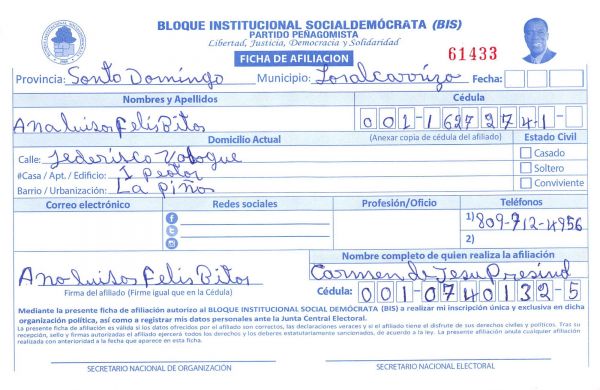 BLOQUE INSTITUCIONAL SOCIALDEMÓCRATA (BIS)
PARTIDO PEÑAGOMISTA
Libertad, Justicia, Democracia y Solidaridad
FICHA DE AFILIACION
61433
Provincia: Santo Domingo Municipio: Losalcarrizo Fecha:
Nombres y Apellidos Cédula
Ana luisos Felis Bitos 001-1627274-1-
Domicilio Actual (Anexar copia de cédula del afiliado) Estado Civil
Calle: Casado
#Casa / Apt. / Edificio: Soltero
Barrio / Urbanización: La piños Conviviente
Correo electrónico Redes sociales Profesión/Oficio Teléfonos
1) 809-712-4956
2)
Nombre completo de quien realiza la afiliación
Ana luisos Felis Bitos Carmen de Jesu
Firma del afiliado (Firme igual que en la Cédula) Cédula: 001-0740132-5
Mediante la presente ficha de afiliación autorizo al BLOQUE INSTITUCIONAL SOCIAL DEMÓCRATA (BIS) a realizar mi inscripción única y exclusiva en dicha
organización política, así como a registrar mis datos personales ante la Junta Central Electoral.
La presente ficha de afiliación es válida si los datos ofrecidos por el afiliado son correctos, las declaraciones veraces y si el afiliado tiene el disfrute de sus derechos civiles y políticos. Tras su
recepción, sello y firmas autorizadas el afiliado ejercerá todos los derechos y los deberes estatutariamente sancionados, de acuerdo a la ley. La presente afiliación anula cualquier afiliación
realizada con anterioridad a la fecha que aparece en esta ficha.
SECRETARIO NACIONAL DE ORGANIZACIÓN SECRETARIO NACIONAL ELECTORAL